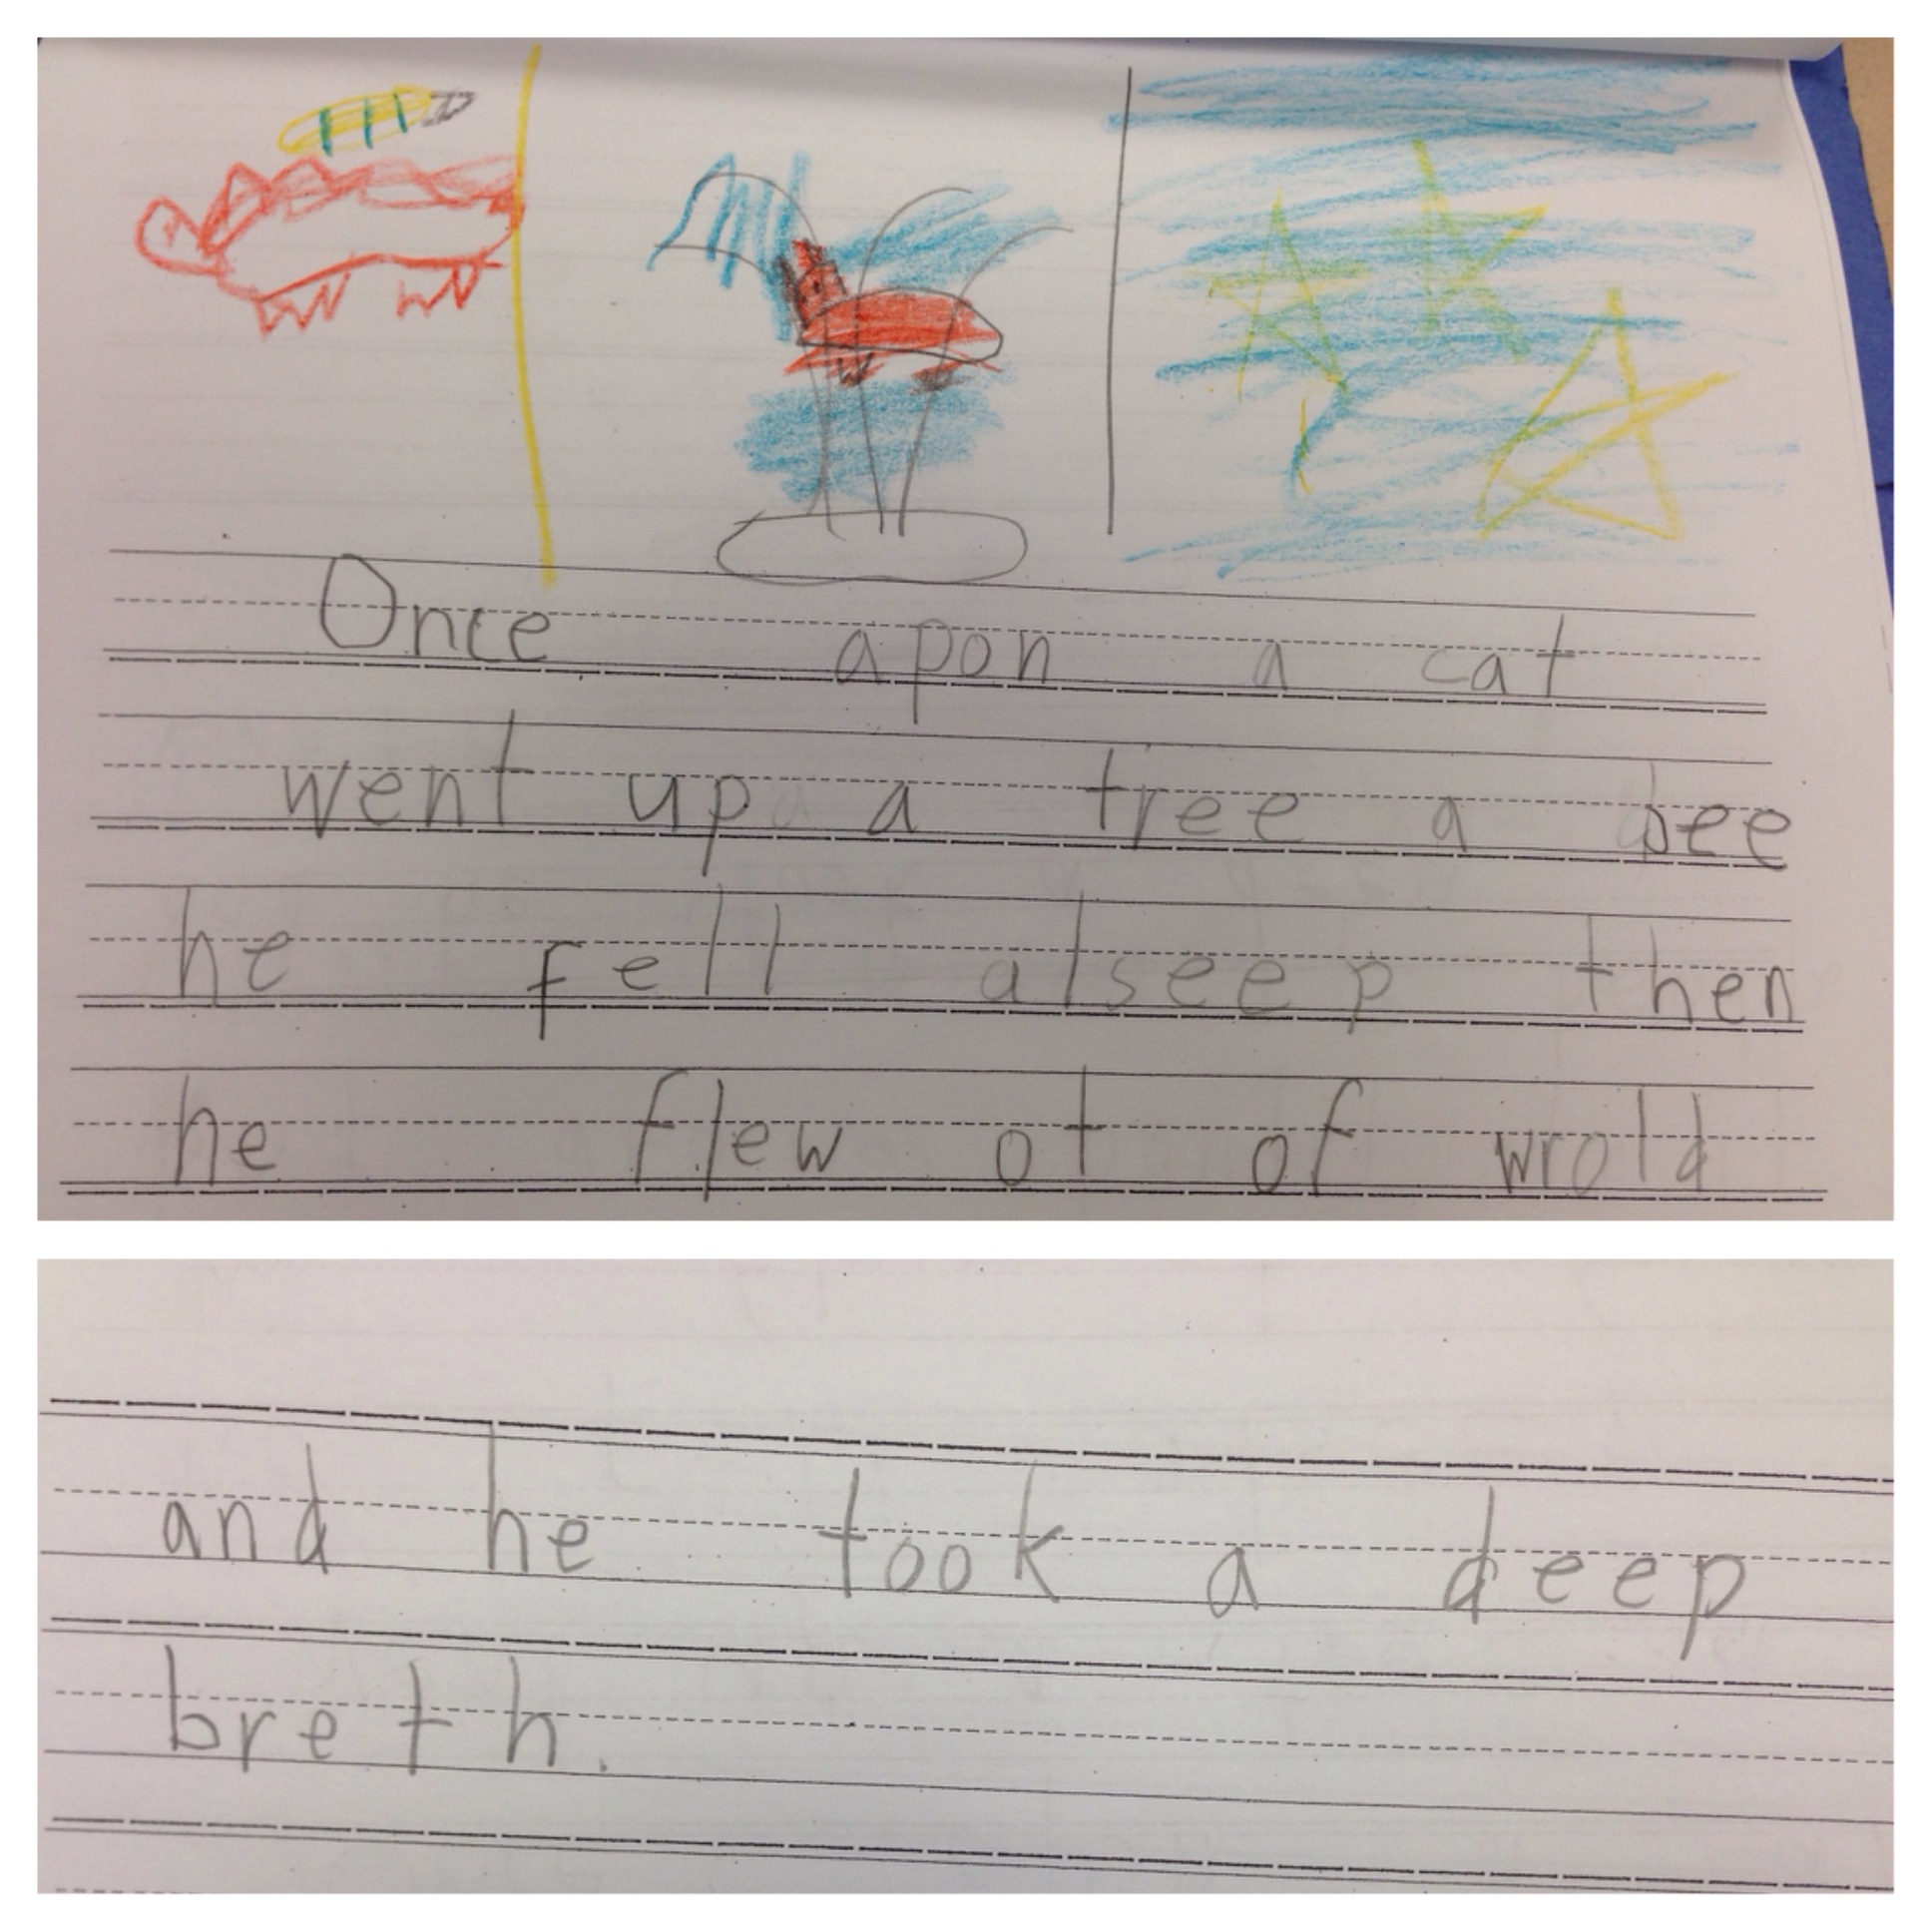 Once apon a cat
went up a tree a bee
he fell alseep then
he flew ot of wrold
and he took a deep
breth.